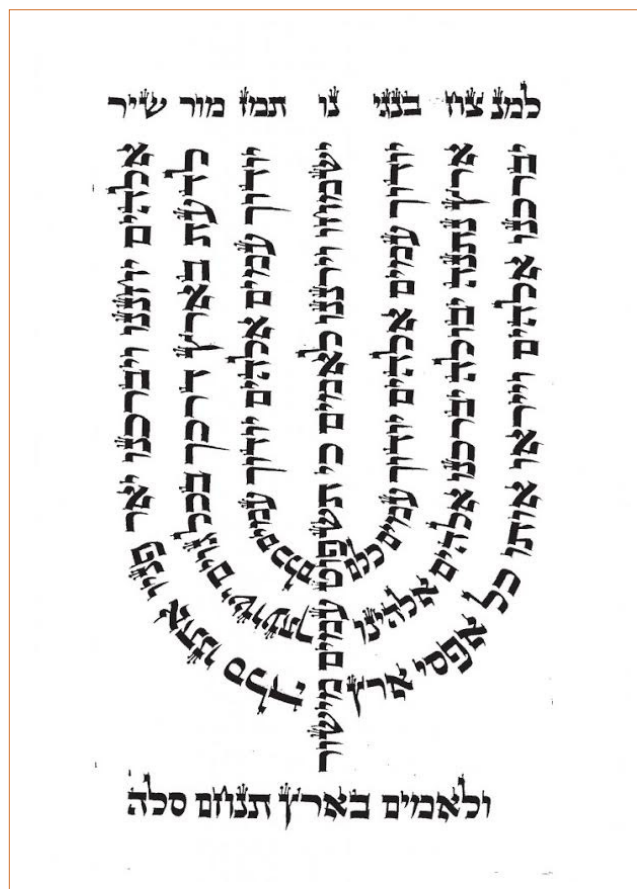 למנ צח בנגי נו תמז מור שיר
אלהים יחננו ויברכנו יאר פניו אתנו סלה
לדעת בארץ דרכך בכל גוים ישועתך
יודוך עמים אלהים יודוך עמים כלם
ישמחו וירננו לאמים כי תשפוט עמים מישור
יודוך עמים אלהים יודוך עמים כלם
ארץ נתנה יבולה יברכנו אלהים אלהינו
יברכנו אלהים וייראו אותו כל אפסי ארץ
ולאמים בארץ תנחם סלה